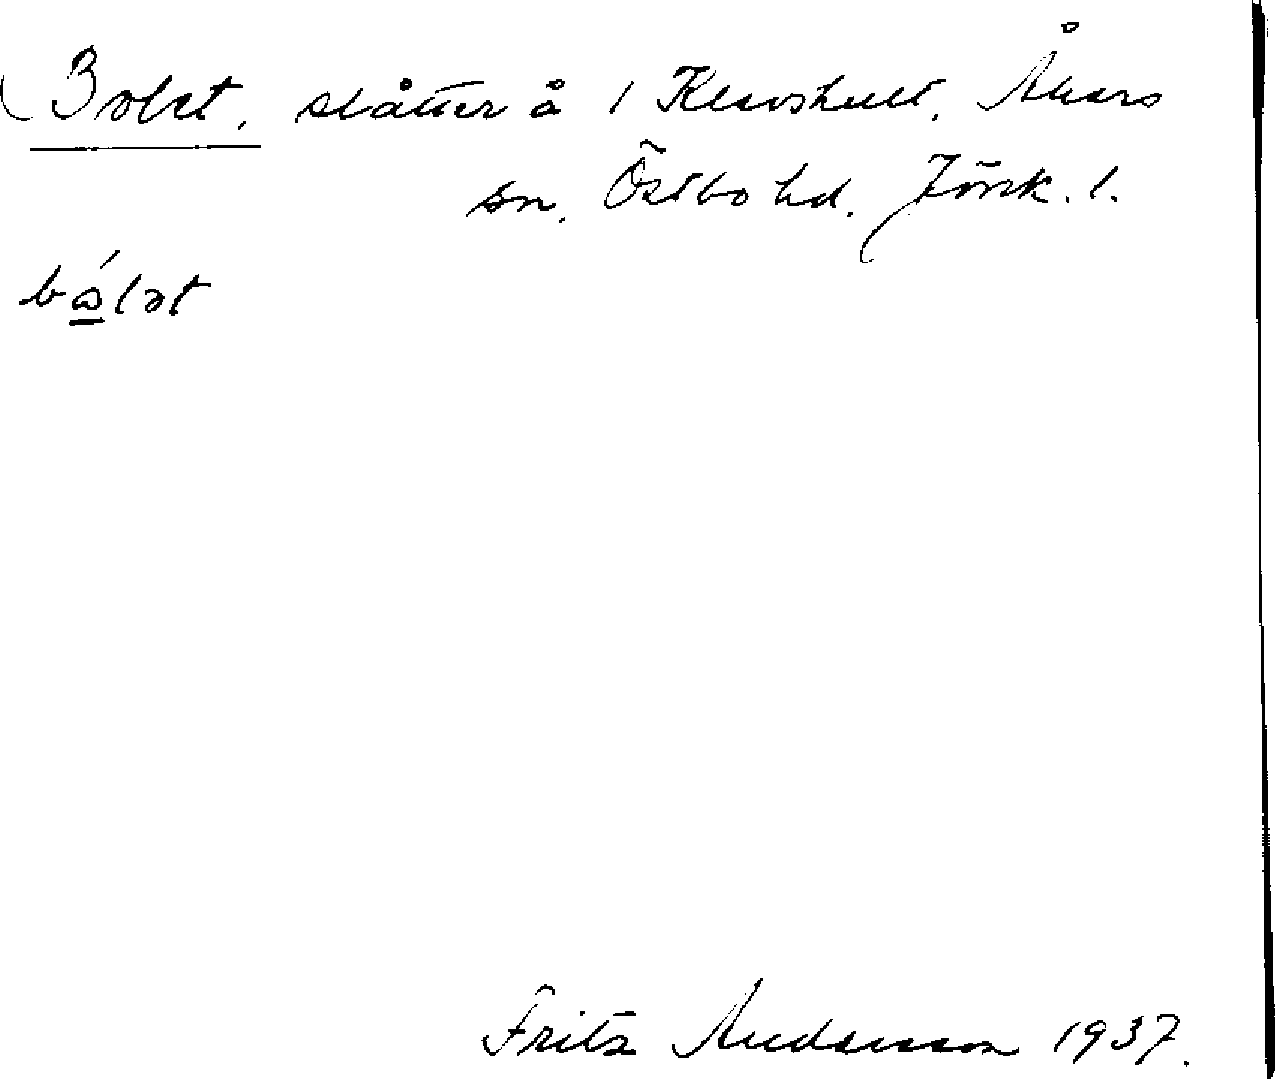 Bolet, slåtter å / Klavshult, Åkers
sn, Östbo hd. Jönk. l.
bólət
Fritz Andersson 1937.